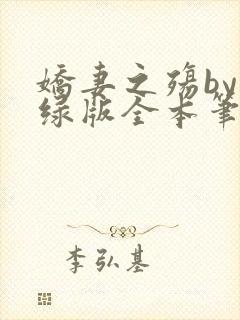 娇妻之殇by
绿版全本笔
李弘基